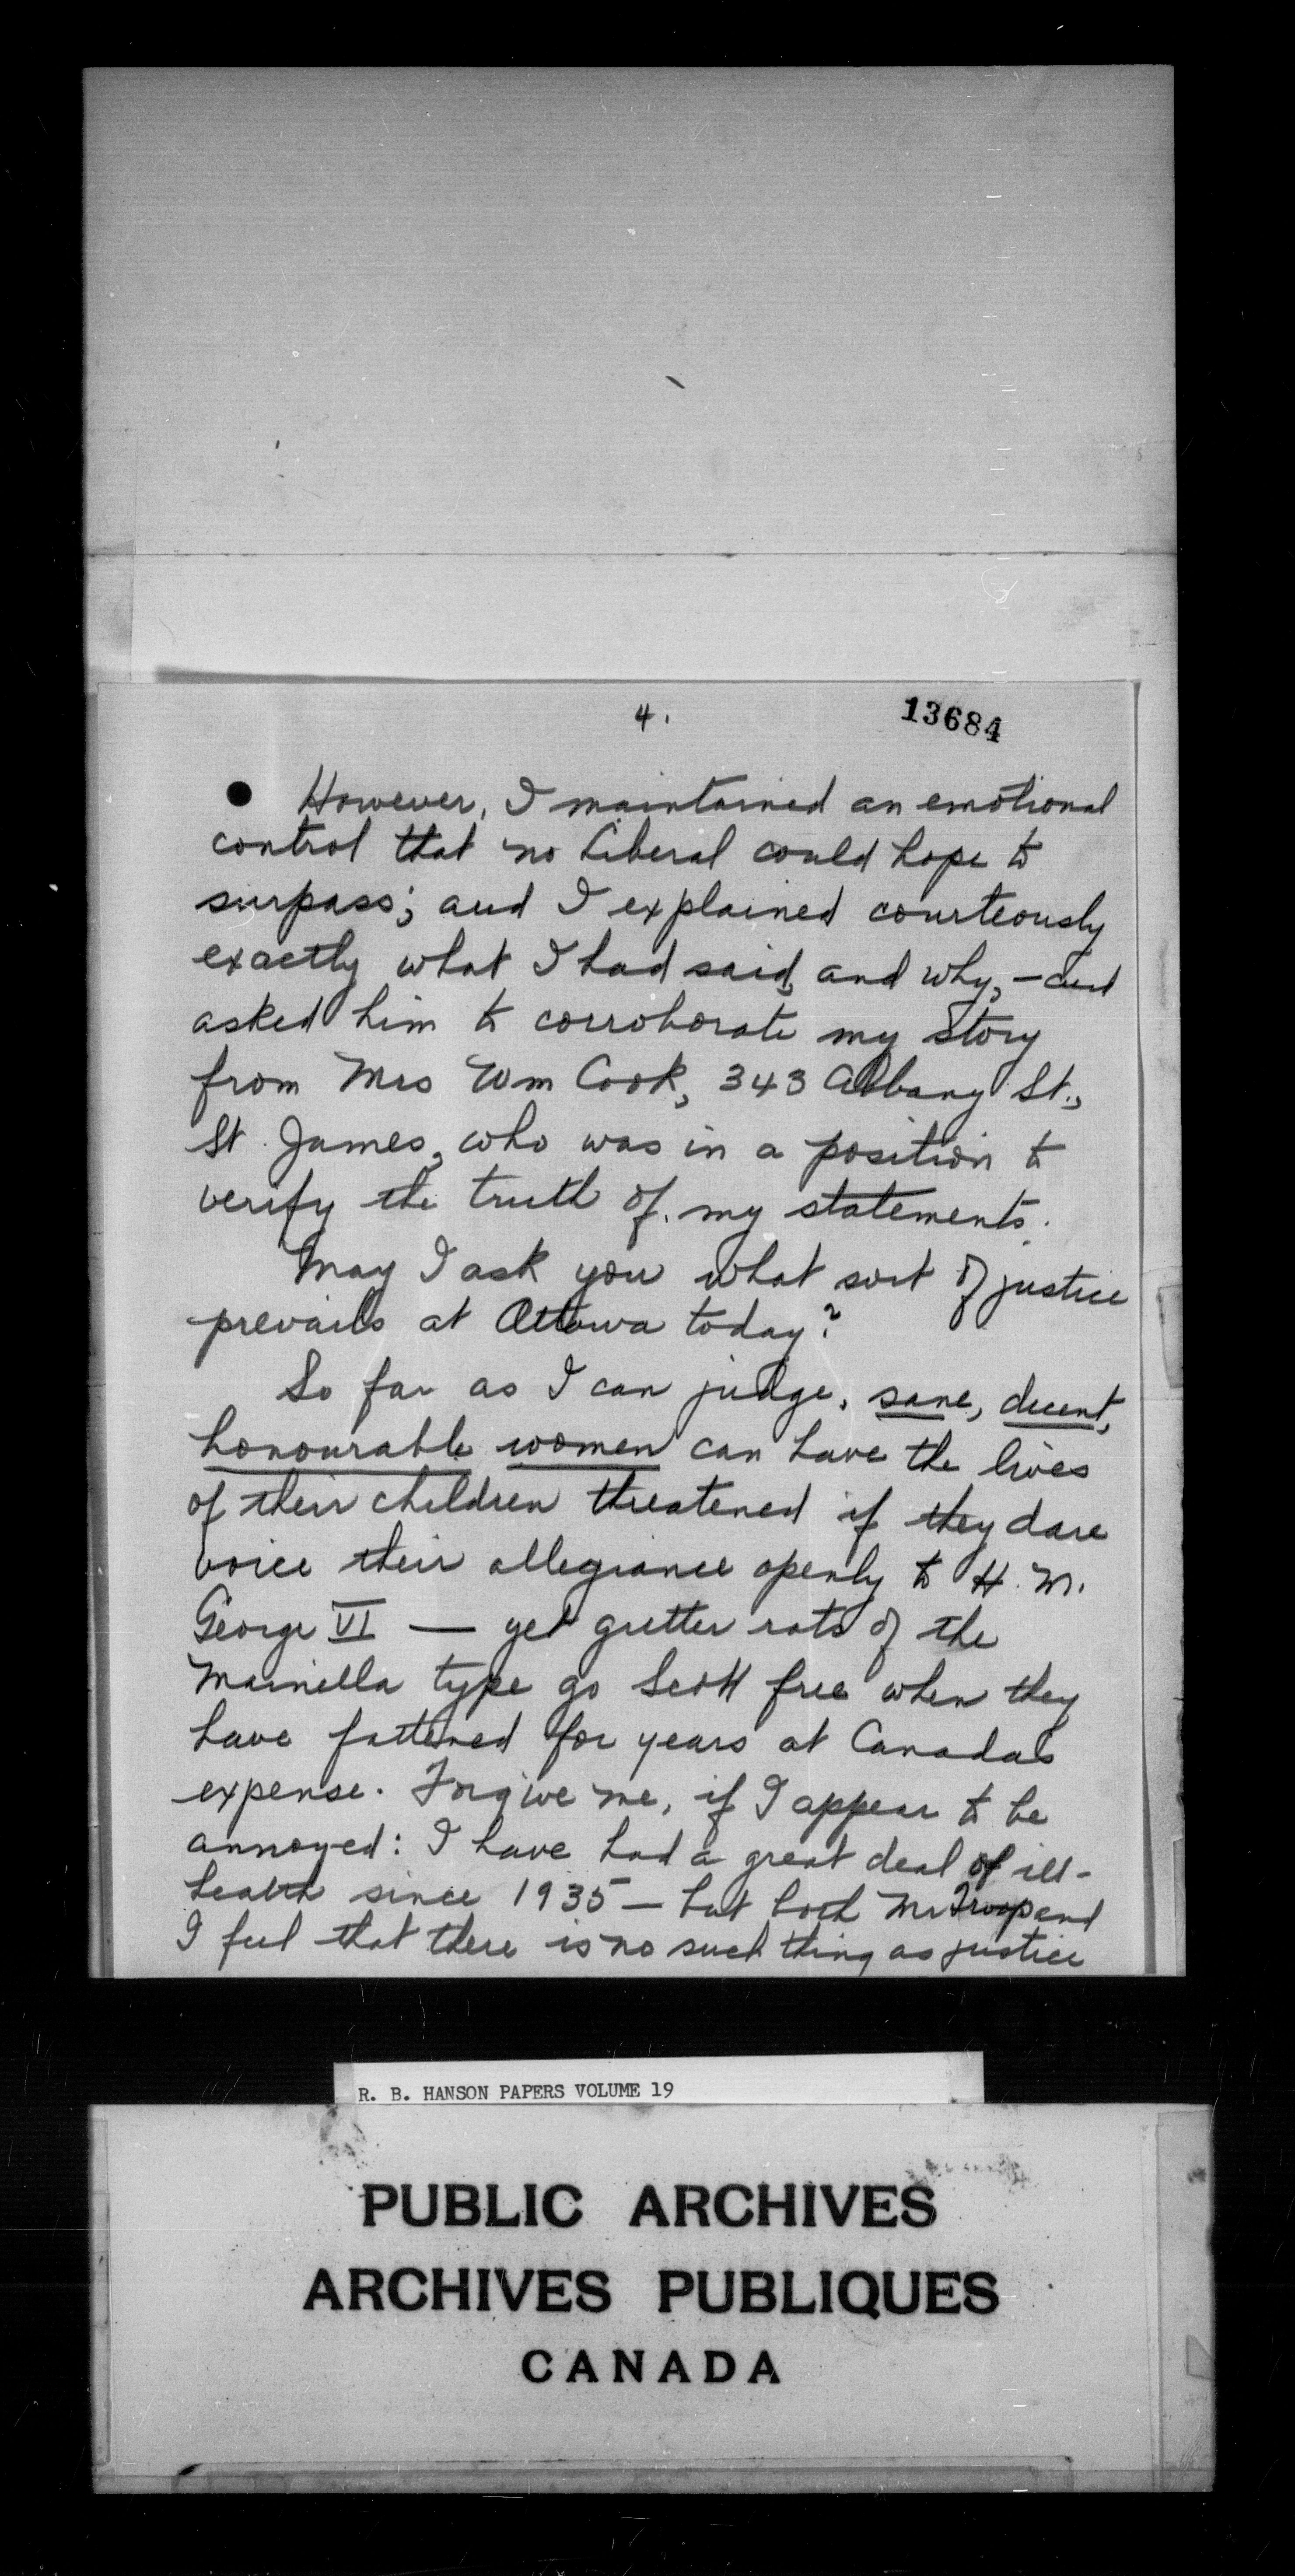 4.
13684
However, I maintained an emotional
control that no Liberal could hope to
surpass; and I explained courteously
exactly what I had said, and why, — and
asked him to corroborate my story
from Mrs Wm Cook, 343 Albany St.,
St. James, who was in a position to
verify the truth of my statements.
May I ask you what sort of justice
prevails at Ottawa today?
So far as I can judge, sane, decent,
honourable women can have the lives
of their children threatened if they dare
voice their allegiance openly to H. M.
George VI — yet gutter rats of the
type go Scott free when they
have fattened for years at Canada's
expense. Forgive me, if I appear to be
annoyed: I have had a great deal of ill-
health since 1935 — but both Mr Troop and
I feel that there is no such thing as justice
R. B. HANSON PAPERS VOLUME 19
PUBLIC ARCHIVES
ARCHIVES PUBLIQUES
CANADA